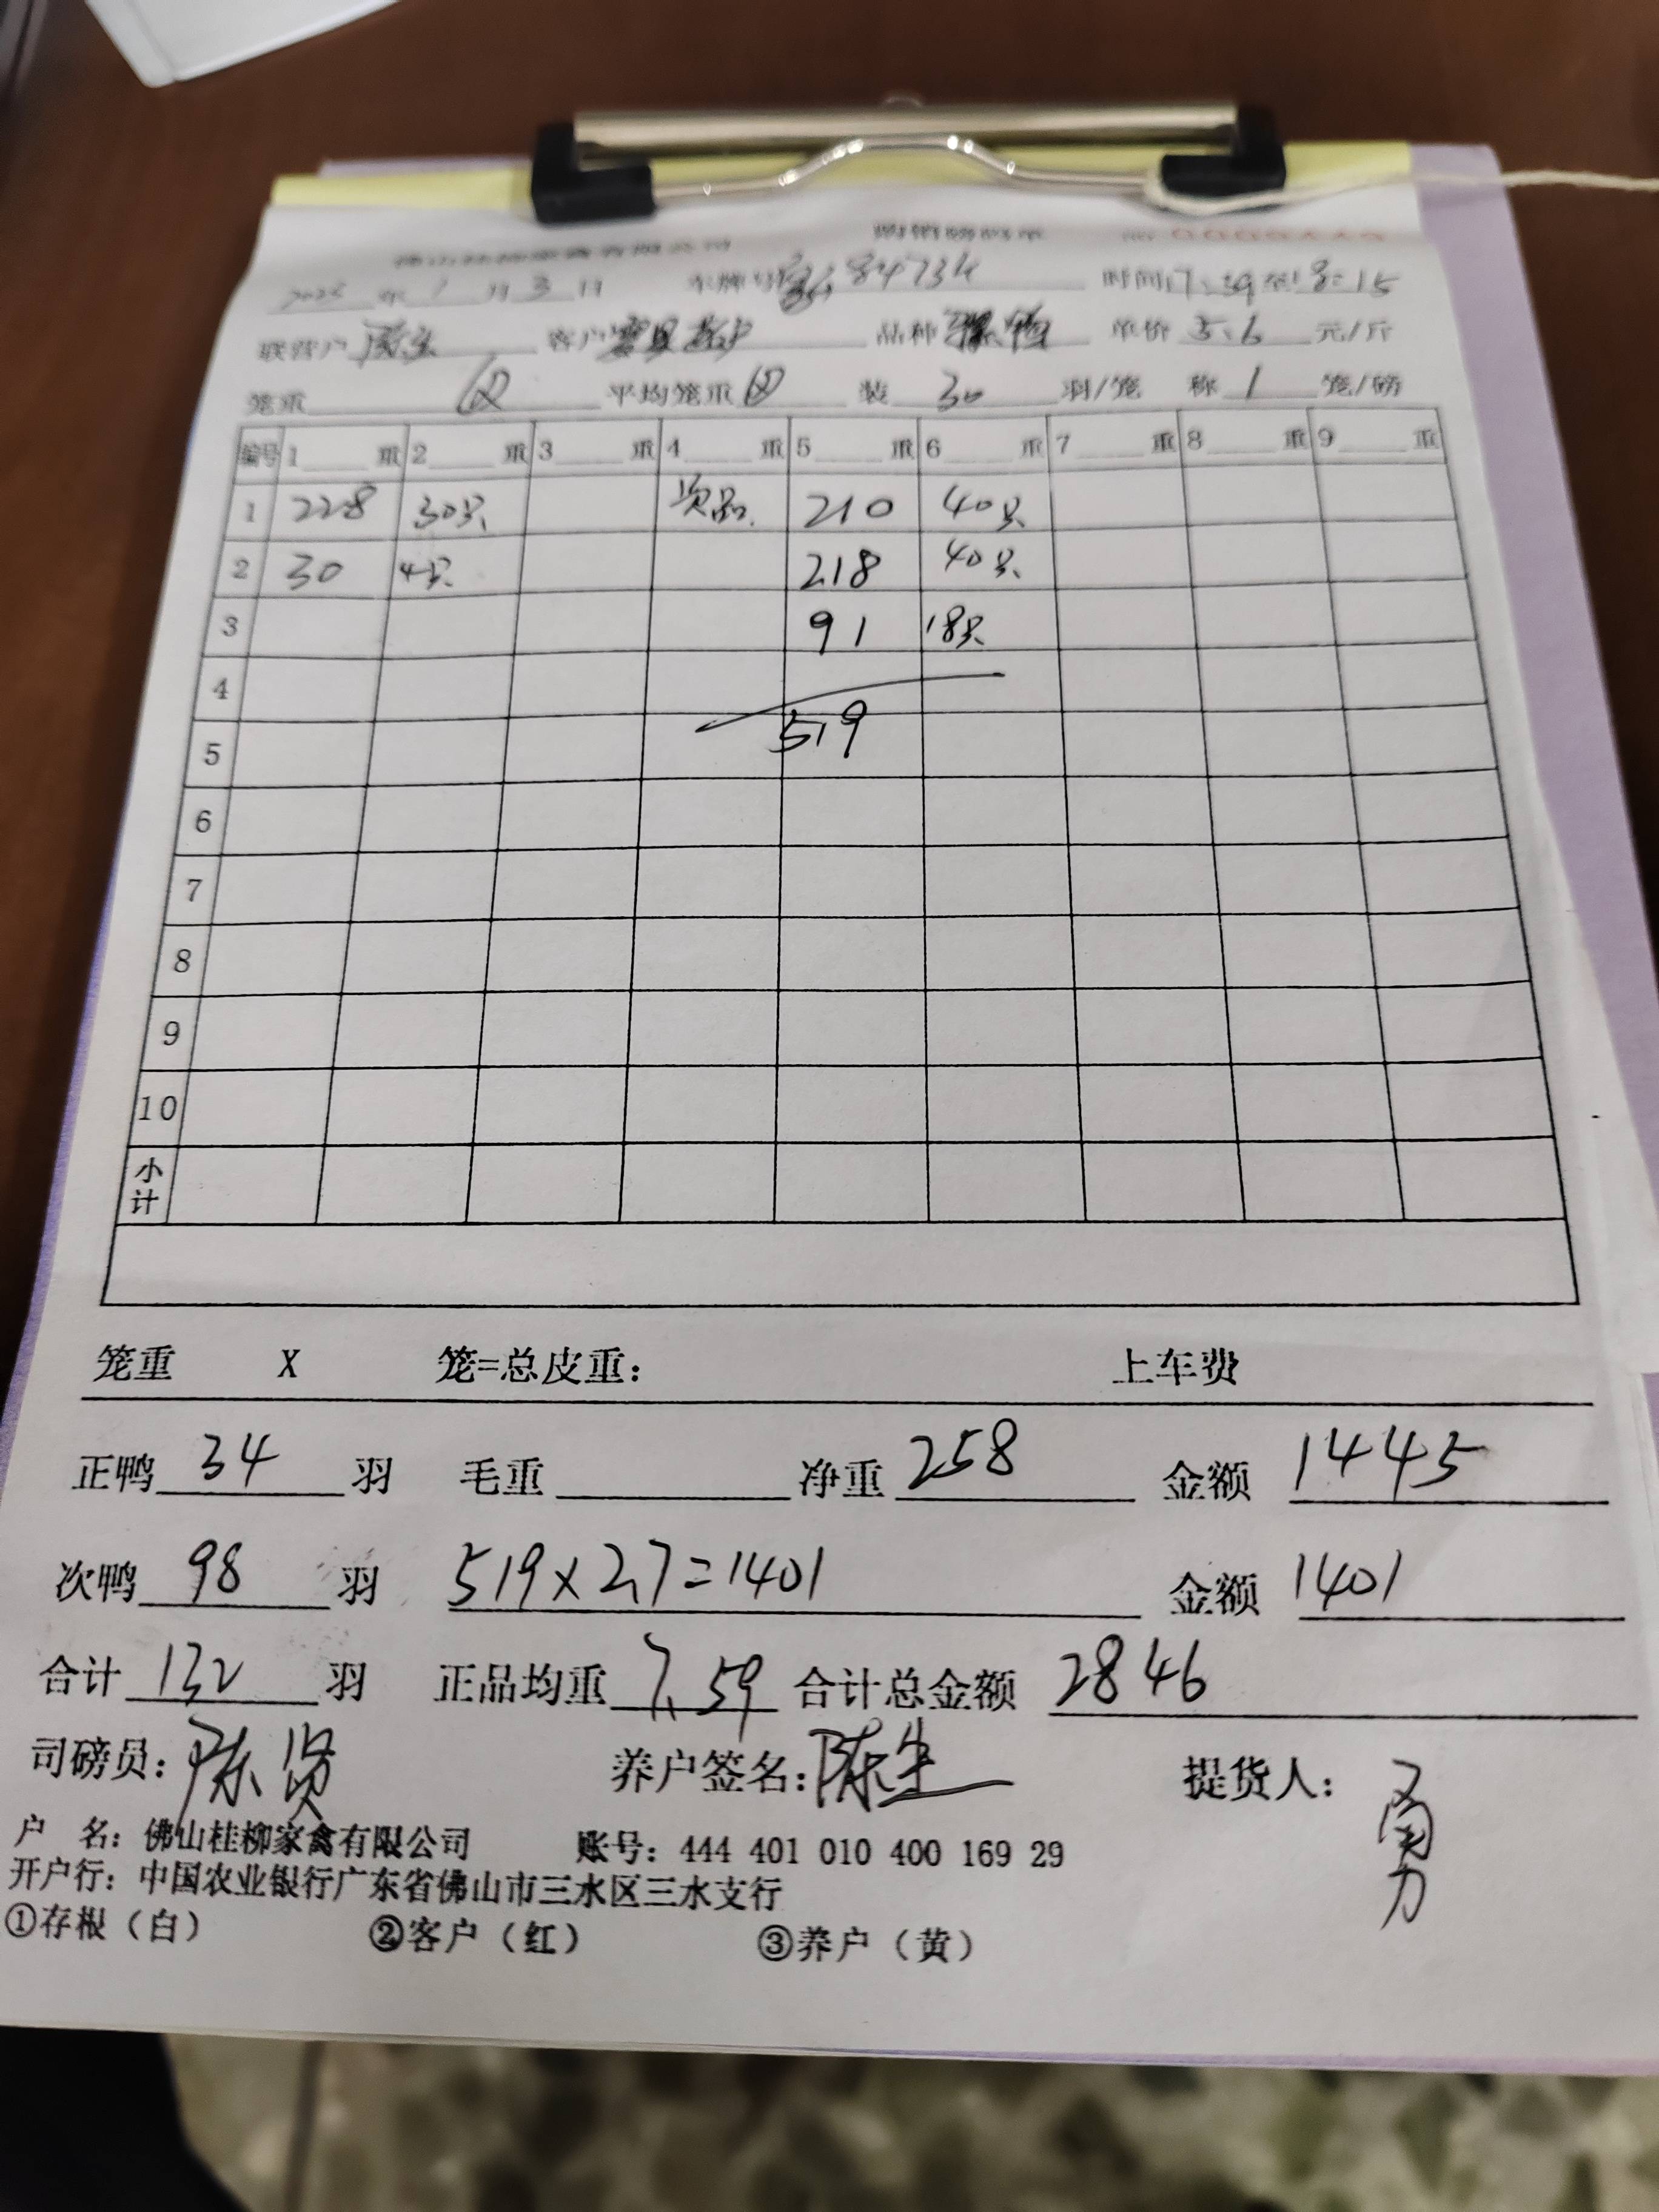 2025年1月3日 车牌号 84734 时间17:59至18:15
联营户 客户 品种 单价5.6元/斤
笼重 回 平均笼重 回 装30羽/笼 称1笼/磅
编号 1 重 2 重 3 重 4 重 5 重 6 重 7 重 8 重 9 重
1 228 30只 次品 210 40只
2 30 4只 218 40只
3 91 18只
4
5 519
6
7
8
9
10
小计
笼重 X 笼=总皮重: 上车费
正鸭 34 羽 毛重 净重 258 金额 1445
次鸭 98 羽 519×2.7=1401 金额 1401
合计 132 羽 正品均重 7.59 合计总金额 2846
司磅员: 陈贤 养户签名: 陈生 提货人: 勇
户 名: 佛山桂柳家禽有限公司 账号: 444 401 010 400 169 29
开户行: 中国农业银行广东省佛山市三水区三水支行
①存根（白） ②客户（红） ③养户（黄）